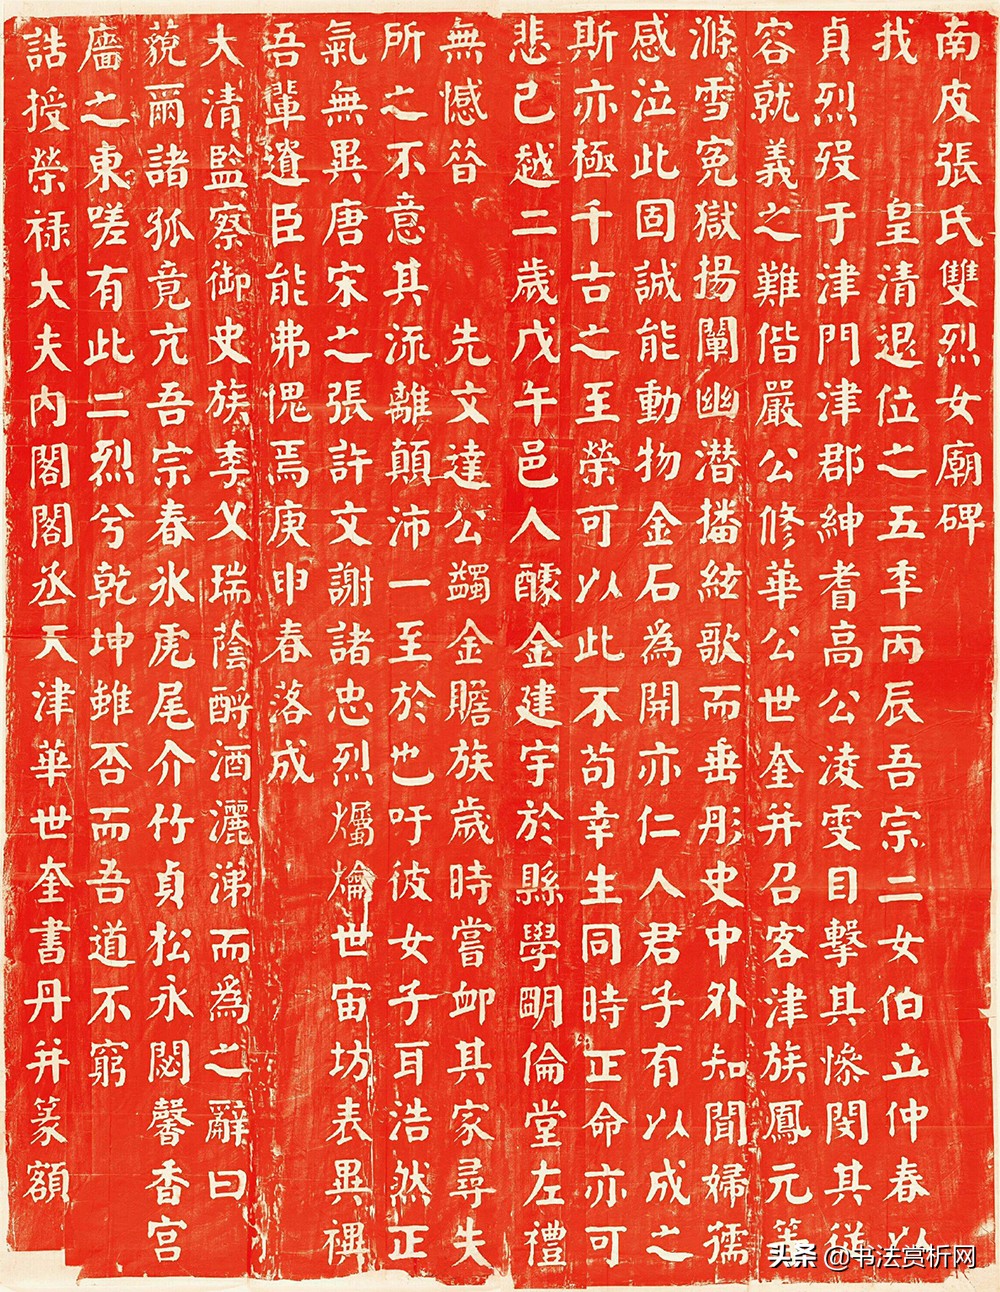 南皮張氏雙烈女廟碑
我 皇清退位之五年丙辰吾宗二女伯立仲春以
貞烈歿于津門津郡紳耆高公淩雯目擊其慘閔其從
容就義之難偕嚴公修華公世奎并召客津族鳳元等
滌雪冤獄揚闡幽潛播絃歌而垂彤史中外知聞婦孺
感泣此固誠能動物金石為開亦仁人君子有以成之
斯亦極千古之至榮可以此不苟幸生同時正命亦可
悲已越二歲戊午邑人醵金建宇於縣學明倫堂左禮
無憾答 先文達公蠲金贍族歲時嘗卹其家尋失
所之不意其流離顛沛一至於也吁彼女子耳浩然正
氣無異唐宋之張許文謝諸忠烈爥爚世宙坊表異禩
吾輩遺臣能弗愧焉庚申春落成
大清監察御史族季父瑞蔭酹酒灑涕而為之辭曰
藐爾諸孤竟亢吾宗春冰虎尾介竹貞松永閟馨香宮
廧之東嗟有此二烈兮乾坤雖否而吾道不窮
誥授榮祿大夫內閣閣丞天津華世奎書丹并篆額
头条 @书法赏析网